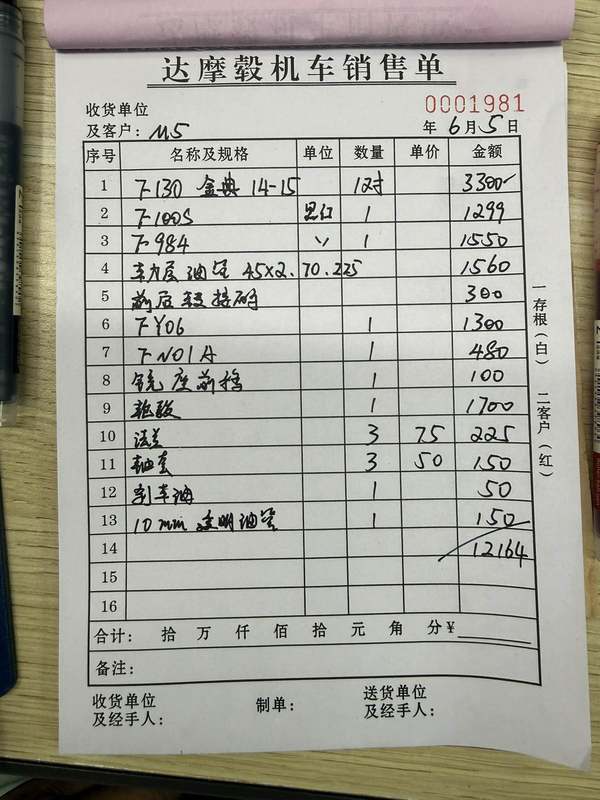 达摩毂机车销售单
收货单位
0001981
及客户: M5 年 6月5日
序号 名称及规格 单位 数量 单价 金额
1 7-130 金典 14-15 12寸 3300
2 7-100S 黑红 1 1299
3 7-984 〃 1 1550
4 油管 45X2.70.225 1560
5 前后转接码 300
6 7-Y06 1 1300
7 7-N01A 1 480
8 1 100
9 1 1700
10 法兰 3 75 225
11 轴套 3 50 150
12 刹车油 1 50
13 10mm 透明油管 1 150
14 12164
15
16
合计: 拾 万 仟 佰 拾 元 角 分¥
备注:
收货单位
及经手人:
制单:
送货单位
及经手人:
一存根(白) 二客户(红)